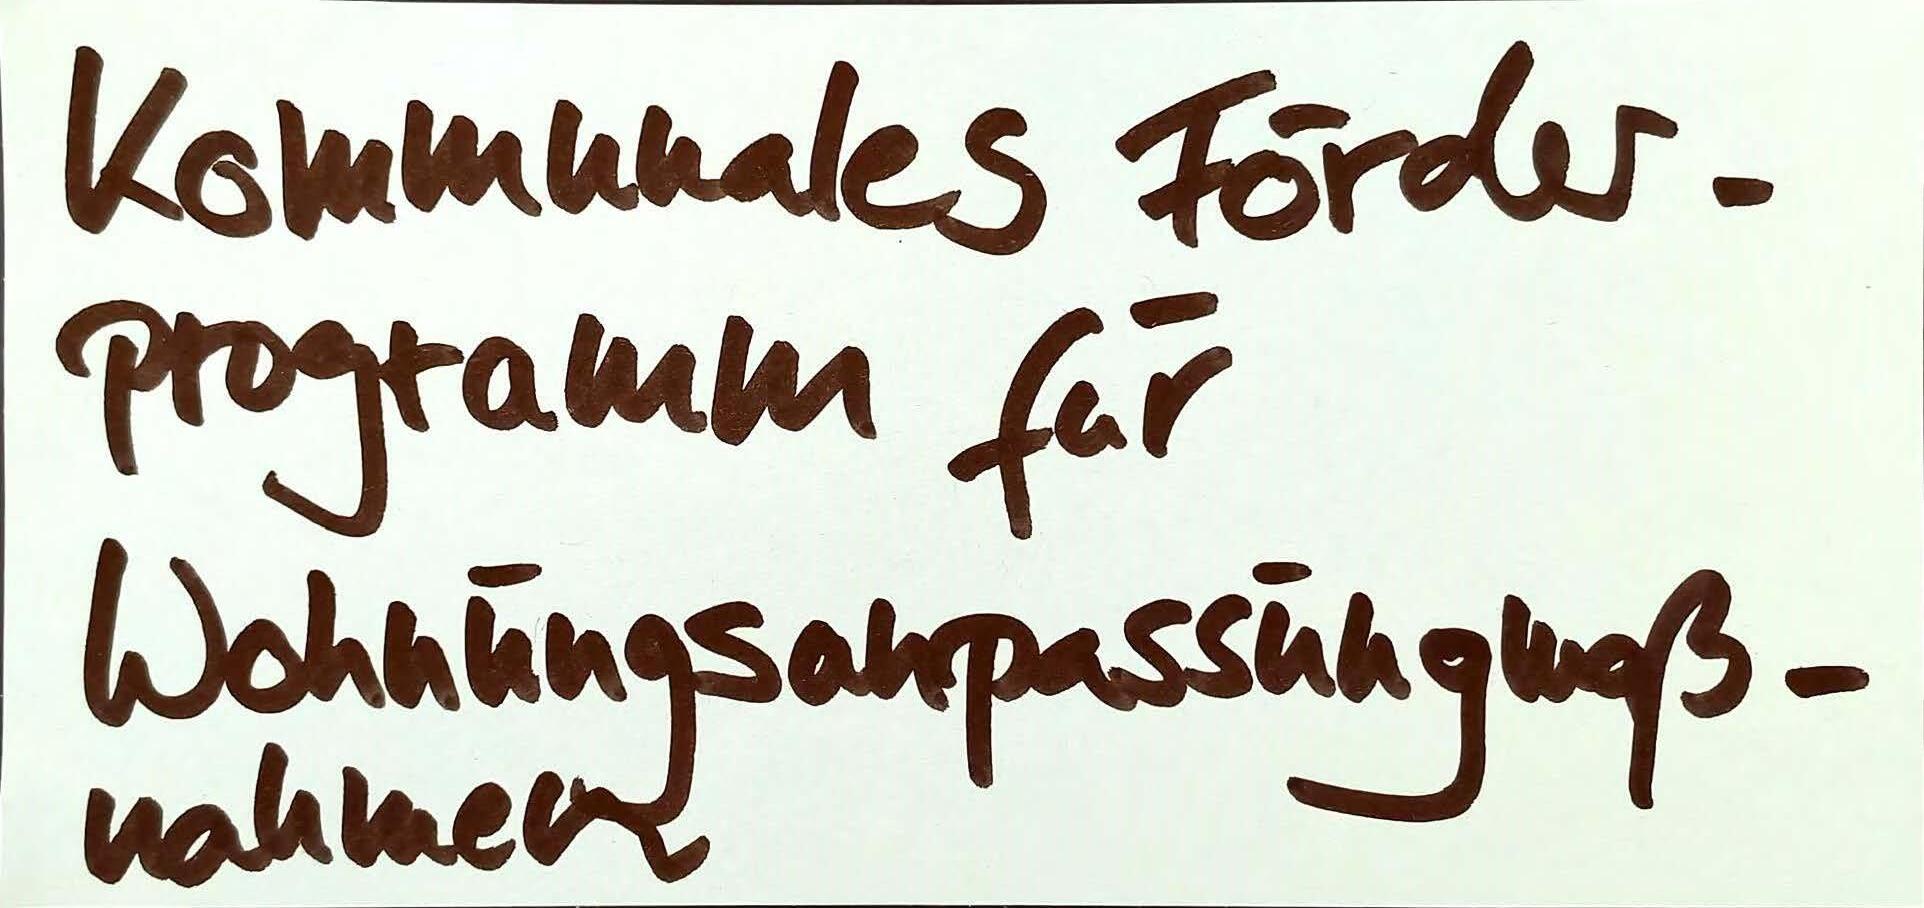 Kommunales Förder-
programm für
Wohnungsanpassungmaß-
nahmen